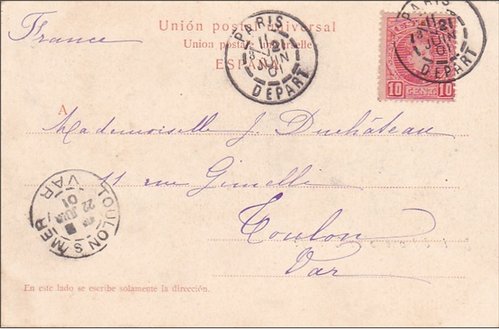 Unión postal universal
Union postale universelle
ESPAÑA
France
PARIS
11 21
JUIN
01
DEPART
PARIS
11 21
JUIN
01
DEPART
10 CENT. 10
A
Mademoiselle J. Duchâteau
11 rue Gimelli
Toulon
Var
TOULON S MER
VAR
22 JUIN
01
En este lado se escribe solamente la dirección.